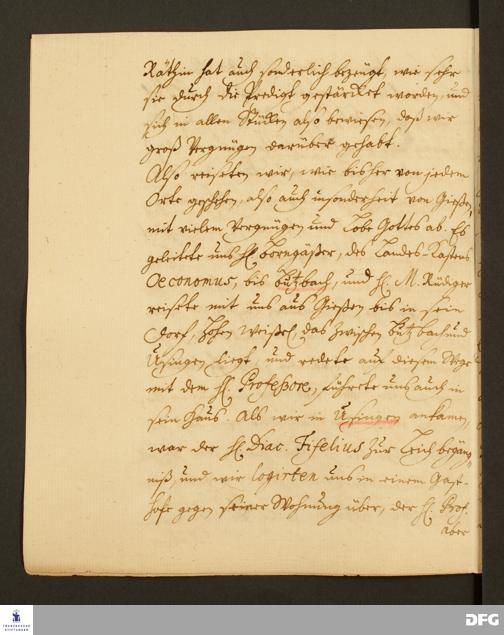 Räthin hat auch sonderlich bezeugt, wie sehr
sie durch die Predigt gestärcket worden, und
sich in allen Stücken also bewiesen, daß wir
groß Vergnügen darüber gehabt.
Also reiseten wir, wie bisher von jedem
Orte geschehen, also auch insonderheit von Gießen,
mit vielem Vergnügen und Lobe Gottes ab. Es
geleitete uns H. Borngäßer, des Landes-Kastens
Oeconomus, bis Butzbach, und H. M. Rüdiger
reisete mit uns aus Gießen bis in sein
Dorf, Hohen Weißel, das zwischen Butzbach und
Usingen liegt, und redete auf diesem Wege
mit dem H. Professore, führete uns auch in
sein Haus. Als wir in Usingen ankamen,
war der H. Diac. Fifelius zur Leich begäng-
niß, und wir logirten uns in einem Gast-
hofe gegen seiner Wohnung über, der H. Prof.
aber
FRANCKESCHE
STIFTUNGEN
DFG